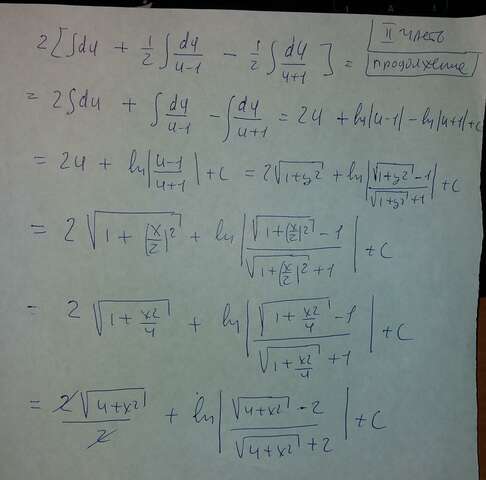 2[∫du + 1/2 ∫du/(u-1) - 1/2 ∫du/(u+1)] =
II часть
продолжение
= 2∫du + ∫du/(u-1) - ∫du/(u+1) = 2u + ln|u-1| - ln|u+1| + c
= 2u + ln|(u-1)/(u+1)| + c = 2√(1+y²) + ln|(√(1+y²) -1)/(√(1+y²) +1)| + c
= 2√(1+(x/2)²) + ln|(√(1+(x/2)²) -1)/(√(1+(x/2)²) +1)| + c
= 2√(1+x²/4) + ln|(√(1+x²/4) -1)/(√(1+x²/4) +1)| + c
= 2√(4+x²)/2 + ln|(√(4+x²) -2)/(√(4+x²) +2)| + c